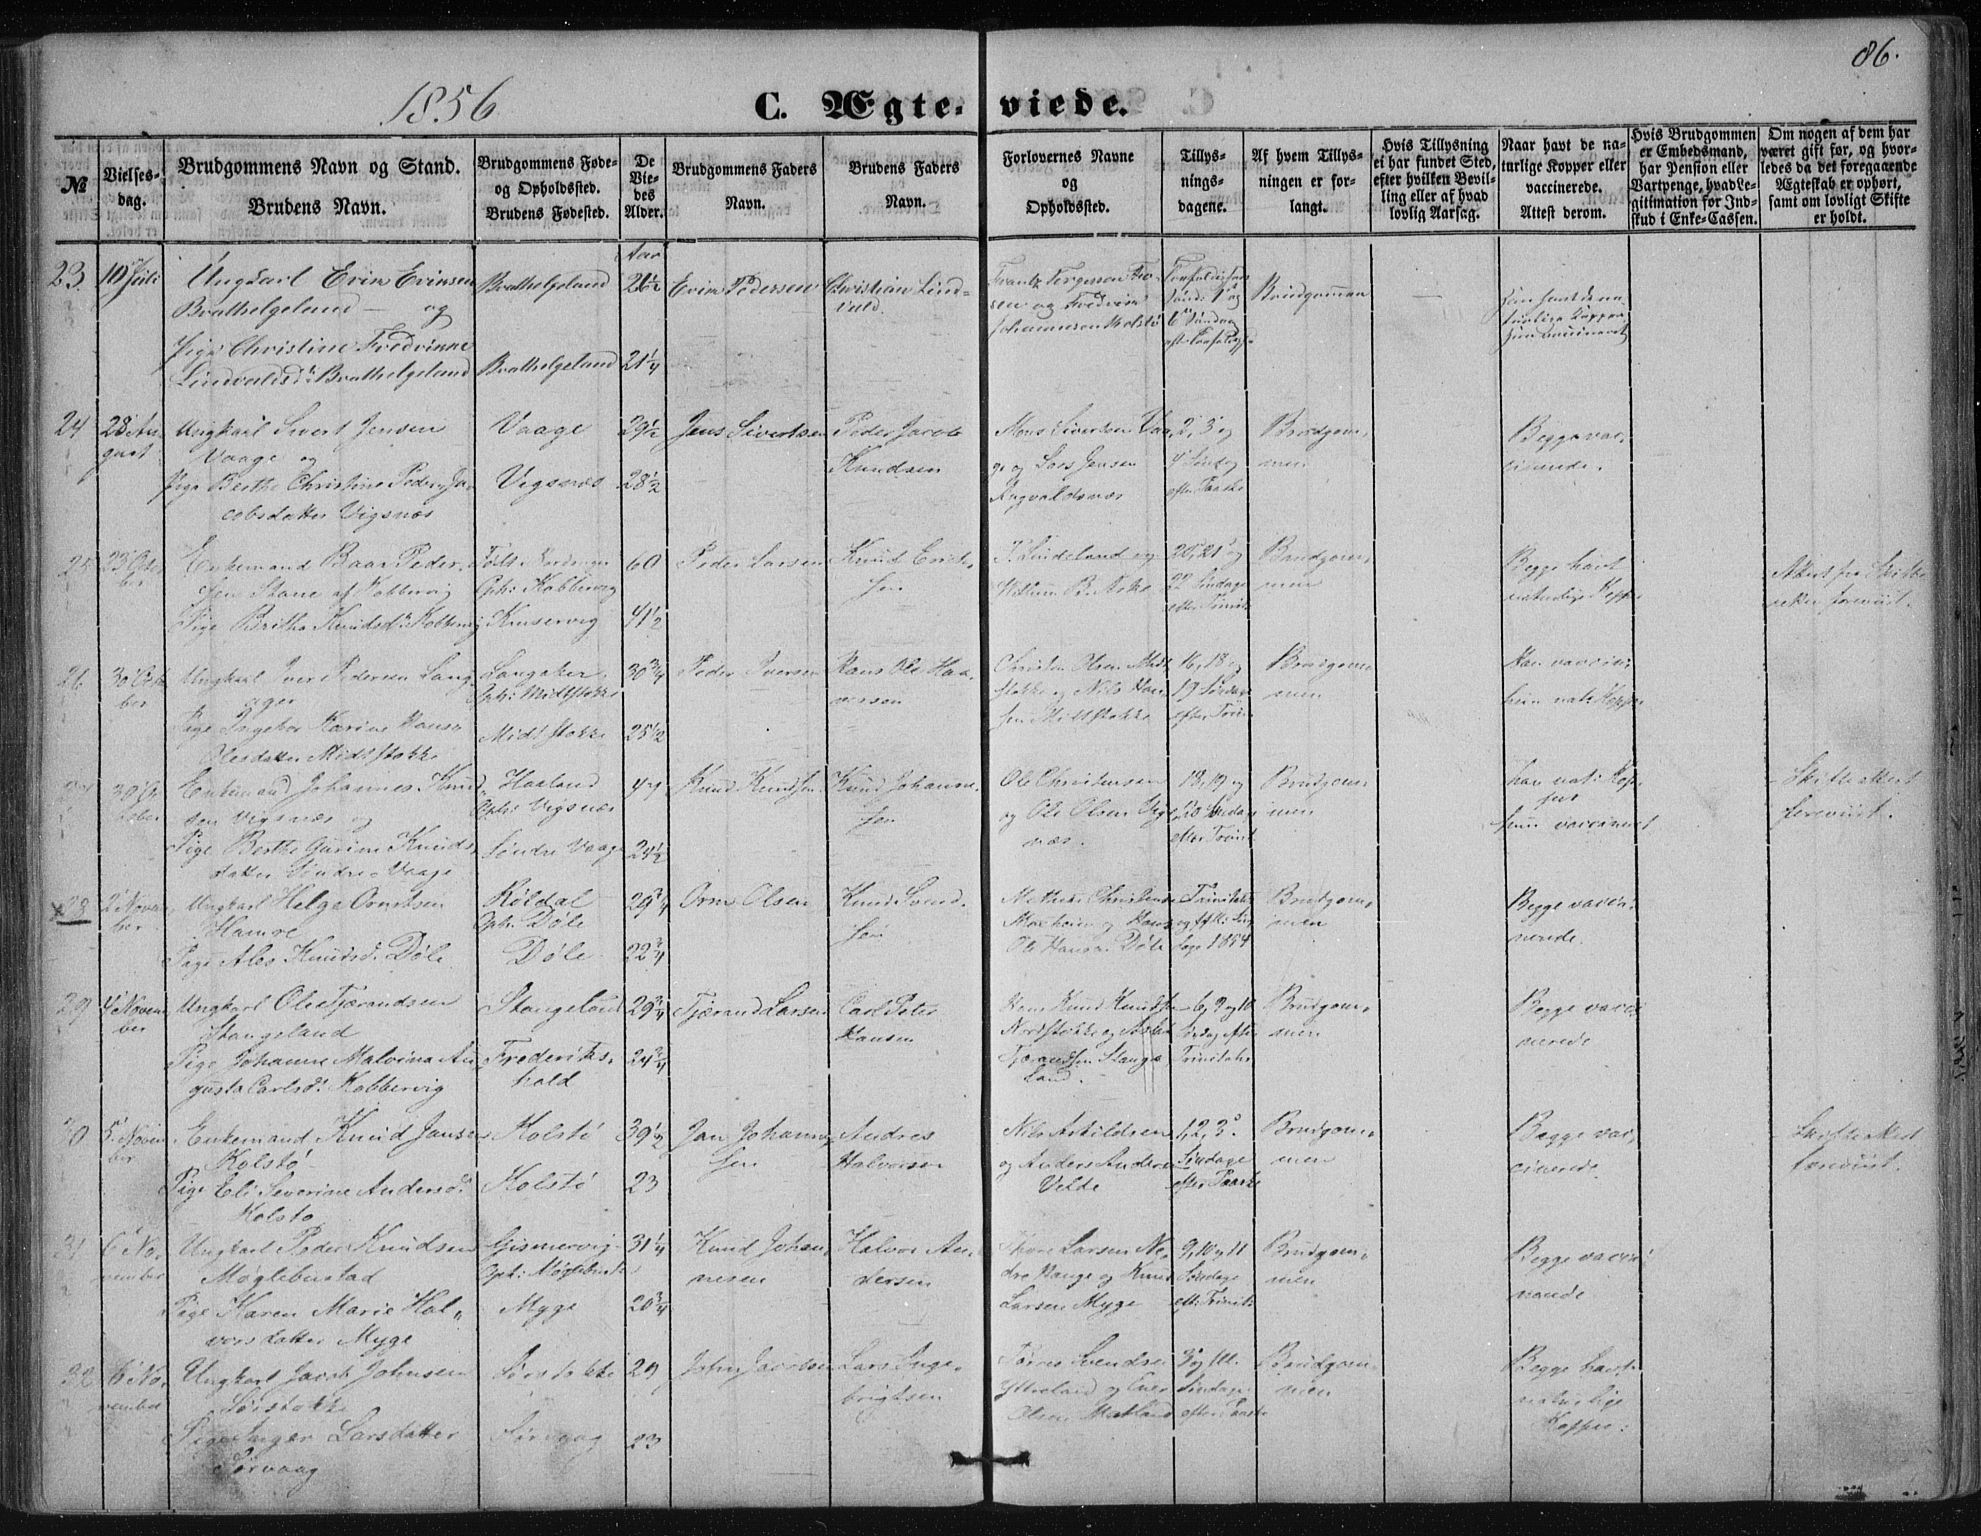 86.
1856
C. Ægte-viede.
№
Vielses-
dag.
Brudgommens Navn og Stand.
Brudens Navn.
Brudgommens Føde-
og Opholdssted.
Brudens Fødested.
De
Vie-
des
Alder.
Brudgommens Faders
Navn.
Brudens Faders
Navn.
Forlovernes Navne
og
Opholdssted.
Tillys-
nings-
dagene.
Af hvem Tillys-
ningen er for-
langt.
Hvis Tillysning
ei har fundet Sted,
efter hvilken Bevil-
ling eller af hvad
lovlig Aarsag.
Naar havt de na-
turlige Kopper eller
vaccinerede.
Attest derom.
Hvis Brudgommen
er Embedsmand,
har Pension eller
Vartpenge, hvad Le-
gitimation for Ind-
skud i Enke-Cassen.
Om nogen af dem har
været gift før, og hvor-
ledes da det foregaaende
Ægteskab er ophørt,
samt om lovligt Skifte
er holdt.
Aar
23 10 Juli
Ungkarl
Bratthelgeland og
Pige Christine Fredrinne
Bratthelgeland
Bratthelgeland
Bratthelgeland
26½
21¼
Pedersen
Christian Lind-
Brudgommen
24 28 Au-
gust
Ungkarl Sivert Jensen
Vaage og
Pige Berthe Christine Peder Ja-
cobsdatter Vigsnæs
Vaage
Vigsnæs
29½
28½
Jens Sivertsen
Peder Jacob
Knudsen
Mons Sivertsen Vaa-
ge og Lars Jensen
2, 3 og
4 Søndag
efter Paaske
Brudgom-
men
Begge vac-
cinerede.
25 23 Octo-
ber
Enkemand Baar Peder-
sen Stane af Kobbervig
Pige Britha Knudsd: Kobbervig
Oph: Kobbervig
60
41½
Peder Larsen
Knud Erik-
sen
20, 21 og
22 Søndage
efter Trinit:
Brudgom-
men
Begge havt
naturlige Kopper
Attest fra Skifte-
retten foreviist.
26 30 Octo-
ber
Ungkarl Iver Pedersen Lang-
ager
Pige Ingebor Karine Hans
Olesdatter Midtstokke
Langaker
Oph: Midtstokke
Midtstokke
30¾
25½
Peder Iversen
Hans Ole Haa-
versen
Christen Olsen Midt-
stokke og Nils Han-
sen Midtstokke
16, 18 og
19 Søndage
efter Trinit
Brudgom-
men
Han vaccin:
hun nat: Kopper
27 30 Oc-
tober
Enkemand Johannes Knud-
sen Vigsnæs og
Pige Berthe Gurine Knuds-
datter Søndre Vaage
Haaland
Oph: Vigsnæs
Søndre Vaage
44
24½
Knud Knudsen
Knud Johanne-
sen
Ole Christensen
og Ole Olsen Vigs-
næs.
18, 19 og
20 Søndag
efter Trinit
Brudgom-
men
han nat: Kop-
per
hun vaccineret
Skifteattest
foreviist.
28 2 Novem-
ber
Ungkarl Helge Ormsen
Hamre
Pige Ales Knudsd: Døle
Røldal
Oph: Døle
Døle
29¾
22¾
Orm Olsen
Knud Svend-
sen
Ole Hansen Døle
1854
Brudgom-
men
Begge vacci-
nerede.
29 4 Novem-
ber
Ungkarl Ole Tjærandsen
Stangeland
Pige Johanne Malvina Au-
gusta Carlsd: Kobbervig
Stangeland
Frederiks-
hald
29¾
24¾
Tjærand Larsen
Carl Peter
Hansen
Nordstokke og
Tjærandsen Stange-
land.
6, 9 og 10
Søndag efter
Trinitatis
Brudgom-
men
Begge vacci-
nerede
30 5 Novem-
ber
Enkemand Knud Jansen
Kolstø
Pige Eli Severine Andersd:
Kolstø
Kolstø
Kolstø
39½
23
Jan Johanne-
sen
Andres
Halvorsen
Nils Askildsen
og Anders Andersen
Velde
1, 2, 3
Søndage
efter Paaske
Brudgom-
men
Begge vac-
cinerede
Skifteattest
foreviist.
31 6 No-
vember
Ungkarl Peder Knudsen
Møglebustad
Pige Karen Marie Hal-
vorsdatter Myge
Gismervig
Oph: Møglebustad
Myge
31¼
20¾
Knud Johan-
nesen
Halvor An-
dersen
Thore Larsen Ne-
dre Hauge og Knud
Larsen Myge
9, 10 og 11
Søndage
eft: Trinit:
Brudgom-
men
Begge vacci-
nerede
32 6 No-
vember
Ungkarl Jacob Johnsen
Sørstokke
Pige Inger Larsdatter
Sørvaag
Sørstokke
Sørvaag
29
23
John Jacobsen
Lars Inge-
brigtsen
Tørres Svendsen
Ytreland og
Olsen
Søndage
efter Paaske
Brudgom-
men
Begge havt
naturlige
Kopper.